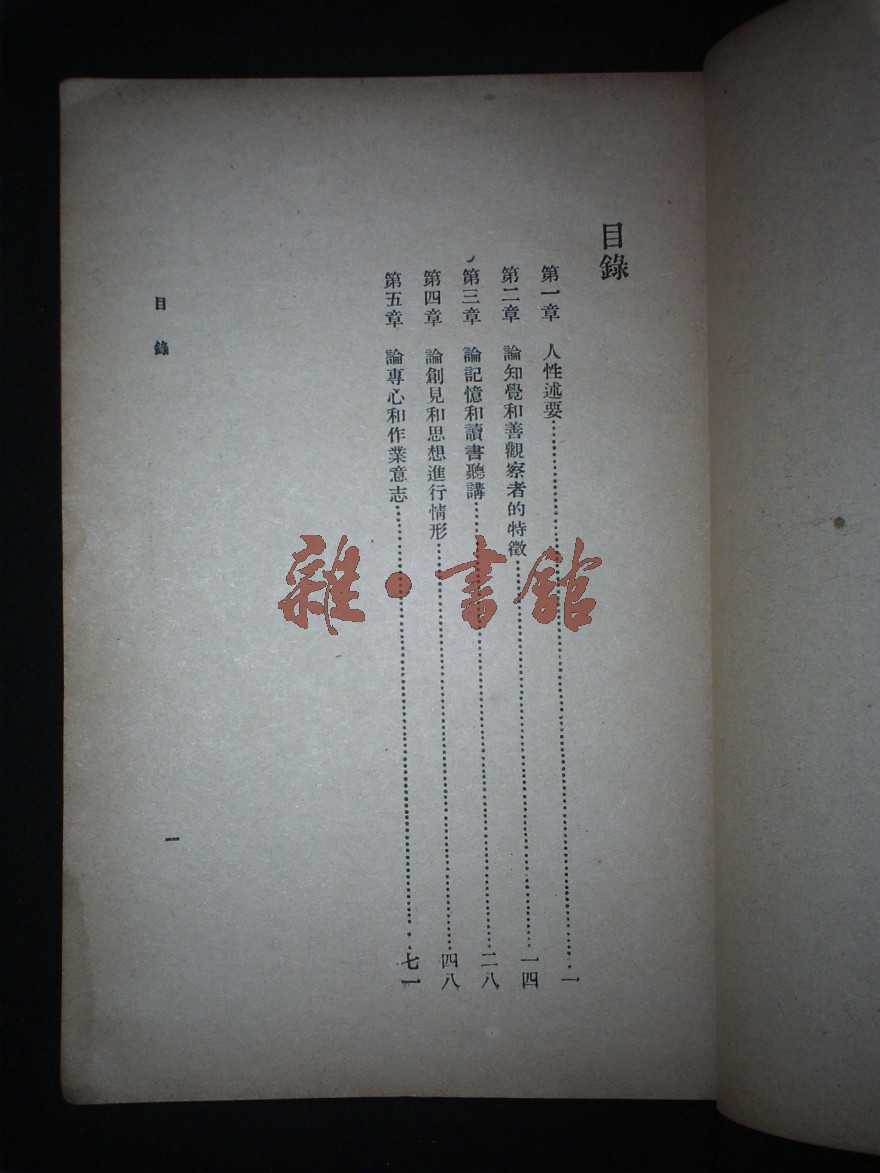 目錄
第一章 人性述要⋯⋯一
第二章 論知覺和善觀察者的特徵⋯⋯一四
第三章 論記憶和讀書聽講⋯⋯二八
第四章 論創見和思想進行情形⋯⋯四八
第五章 論專心和作業意志⋯⋯七一
目錄
一
雜·書館